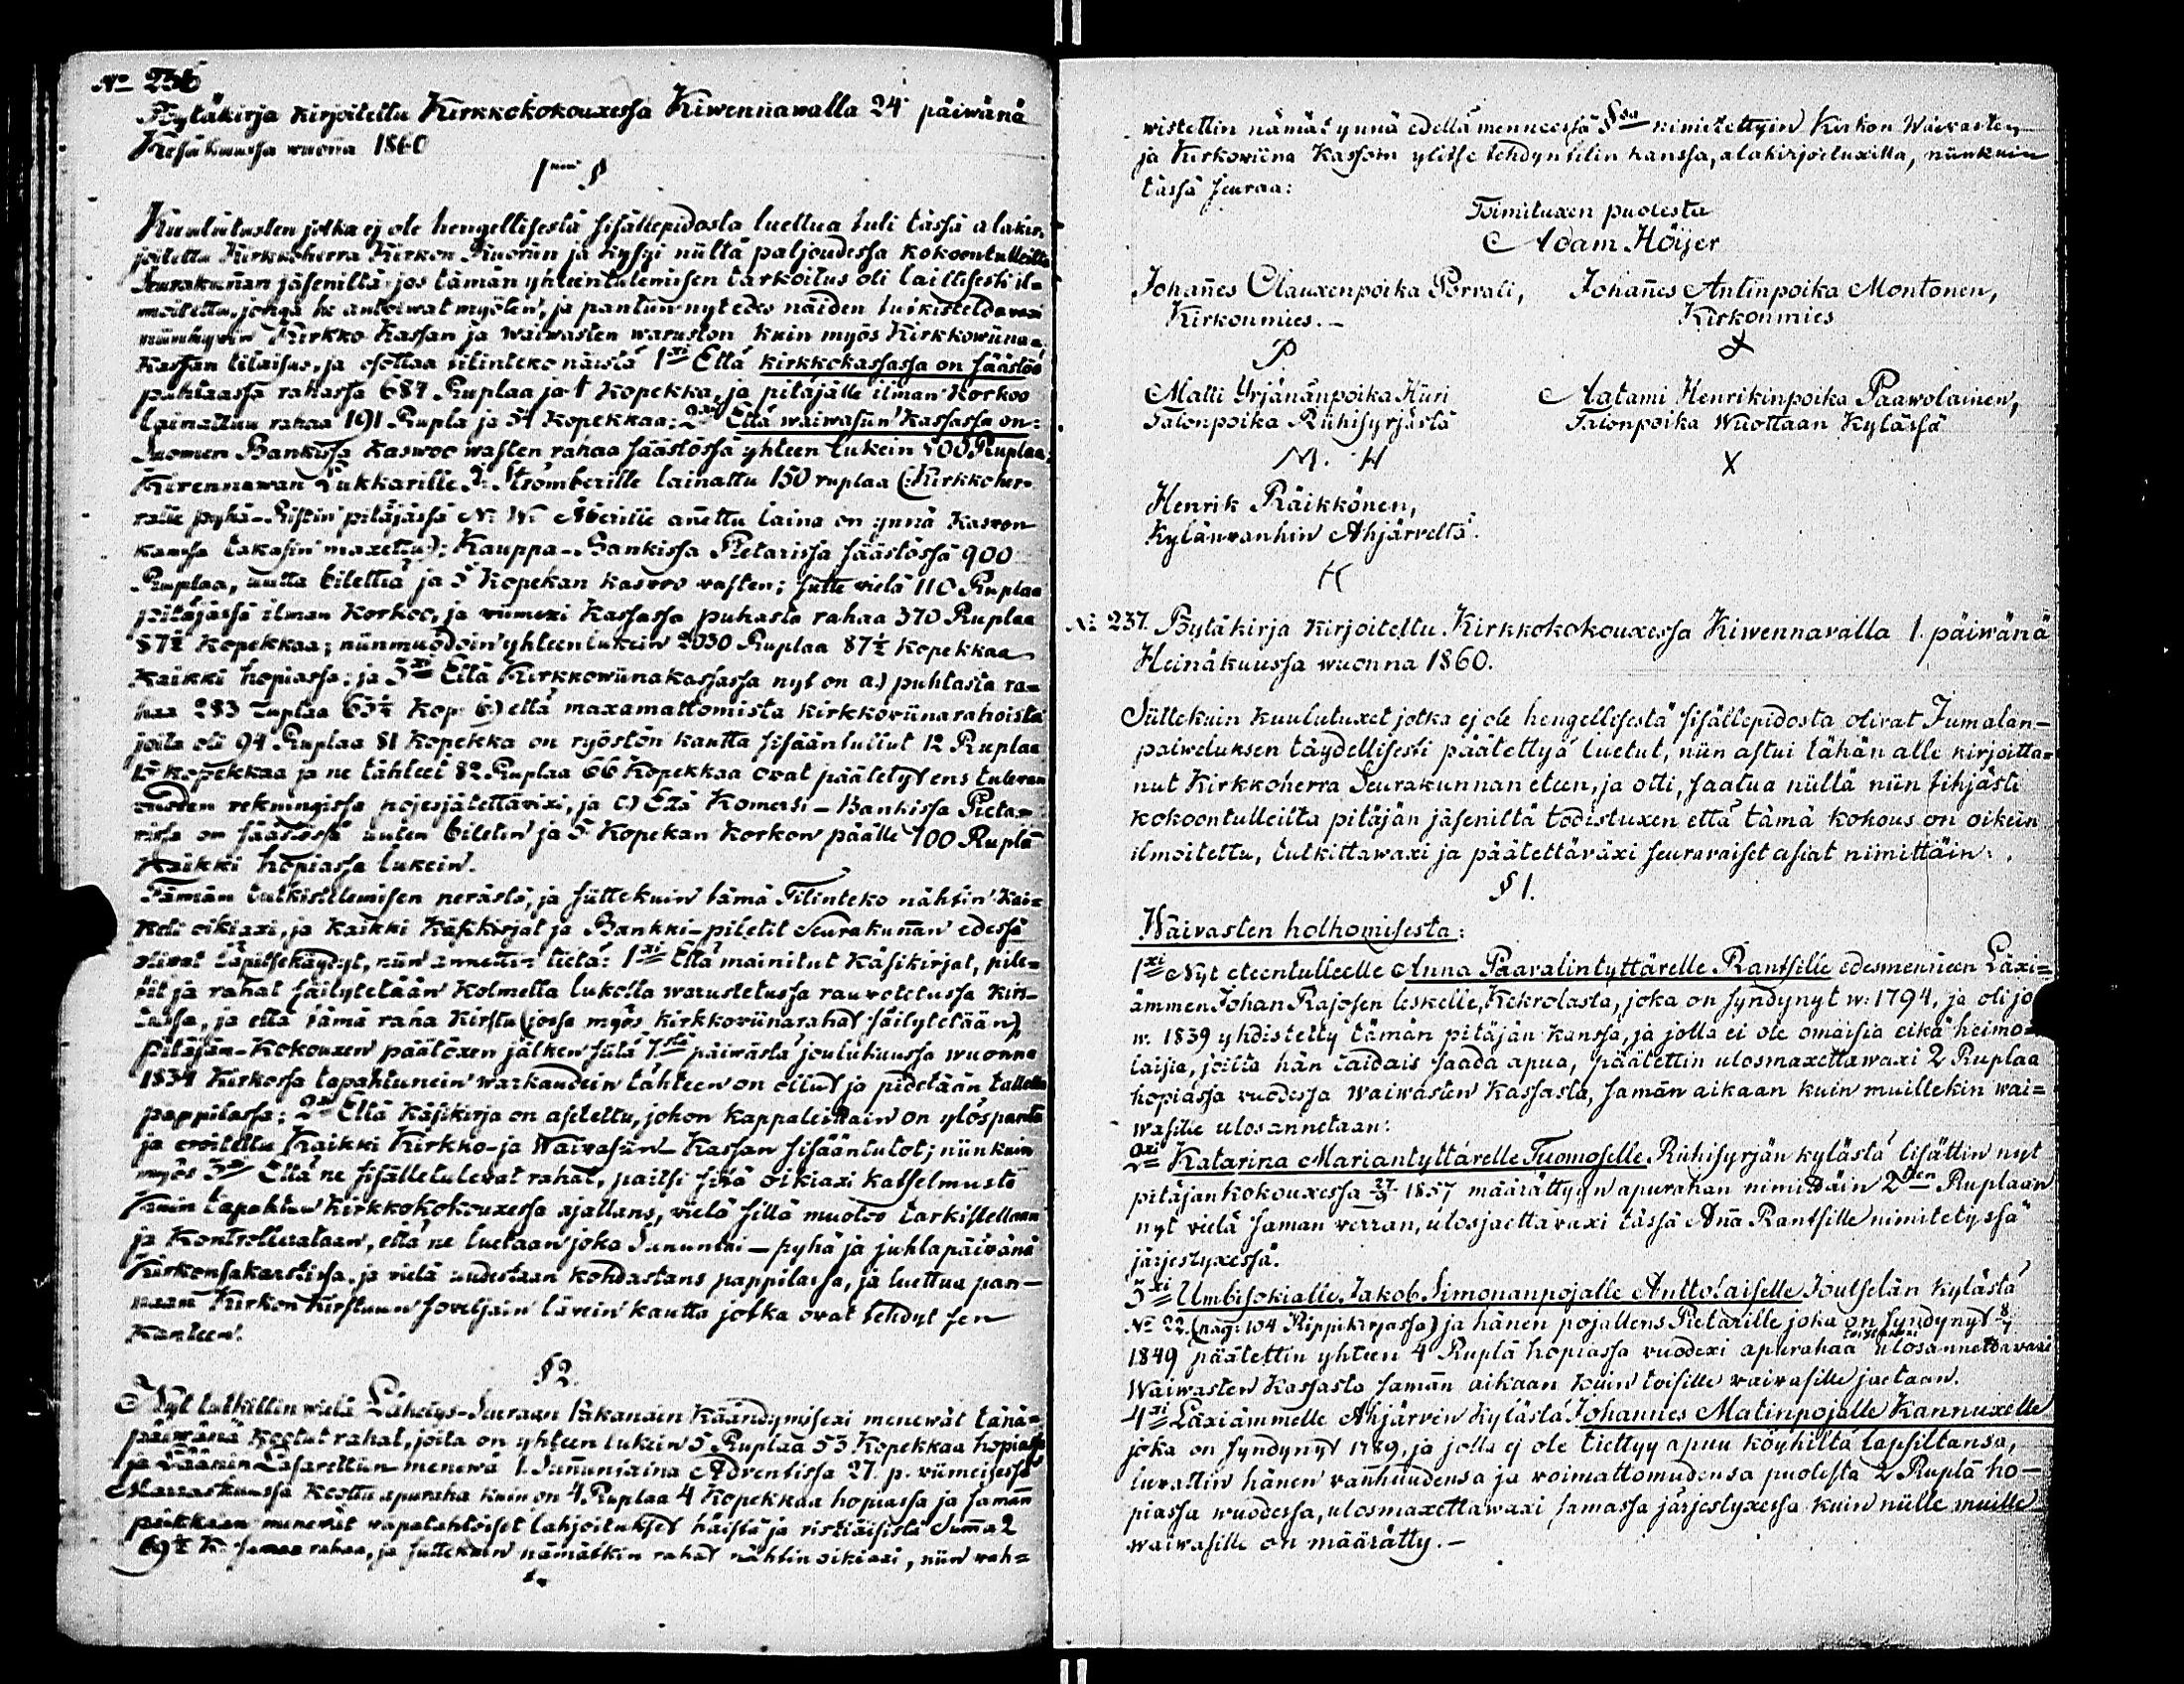 No 236
Pytäkirja kirjoitettu Kirkkokokouxessa Kiwennawalla 24 päiwänä
Kesäkuussa wuonna 1860
1 §
Kuulutusten jotka ej ole hengellisestä sisällepidosta luettua tuli tässä alakir-
joitettu Kirkkoherra Kirkon Kuoriin ja kysyi niiltä paljoudessa kokoontulleilta
Seurakunnan jäseniltä jos tämän yhteentulemisen tarkoitus oli laillisesti il-
moitettu, jonga he antoiwat myöten, ja pantiin nyt edes näiden tutkisteldawaxi
Kirkko Kassan ja waiwasten waruston kuin myös Kirkkowiina-
Kassan tilaisus, ja osottaa tilinteko näistä 1xi Että kirkkokassassa on säästöö
puhtaassa rahassa 684 Ruplaa ja 1 kopekka, ja pitäjälle ilman Korkoo
lainattuu rahaa 191 Rupla ja 54 kopekkaa; 2xi Että waiwasiin Kassassa on:
Suomen Bankissa kaswoo wasten rahaa säästössä yhteen lukein 500 Ruplaa;
Kirennawan Lukkarille J. Strömberille lainattu 150 ruplaa (:Kirkkoher-
ralle pyhä-Ristin pitäjässä N. W. Åberille anettu laina on ynnä Kaswon
kanssa takasin maxettu); Kauppa-Bankissa Pietarissa säästössä 900
Ruplaa, uutta bilettiä ja 5 Kopekan kaswoo wasten; sitte wielä 110 Ruplaa
pitäjässä ilman Korkoo, ja wiimexi Kassassa puhasta rahaa 370 Ruplaa
87½ Kopekkaa; niinmuodoin yhteenlukein 2030 Ruplaa 87½ Kopekkaa
Kaikki hopiassa; ja 3xi Että Kirkkowiinakassassa nyt on a) puhtasta ra-
haa 283 ruplaa 63¼ Kop: b) että maxamattomista kirkkowiinarahoista
joita oli 94 Ruplaa 81 Kopekka on ryöstön kautta sisääntullut 12 Ruplaa
15 kopekkaa ja ne tähteet 82 Ruplaa 66 Kopekkaa ovat päätetyt ens tulewan
wuoden rekningissä pojesjätettäwixi, ja c) Että Komersi-Bankissa Pieta-
rissa on säästössä uuten biletin ja 5 Kopekan Korkon päälle 100 Ruplā
Kaikki hopiassa lukein.
Tämän tutkistelemisen perästä, ja siittekuin tämä Tilinteko nähtiin kai-
keti oikiaxi, ja kaikki Käsikirjat ja Bankki-piletit Seurakunnan edessä
olivat läpitsekäydyt, niin annettiin tietä: 1xi Että mainitut Käsikirjat, pile-
tit ja rahat säilytetään kolmella lukolla warustetussa rauvotetussa kirs-
tussa, ja että tämä raha kirstu (jossa myös kirkkowiinarahat säilytetään)
Pitäjän-Kokouxen päätöxen jälken siitä 7stä päiwästä joulukuussa wuonna
1834 Kirkossa tapahtunein warkaudein tähteen on ollut ja pidetään tallella
pappilassa; 2xi Että Käsikirja on asetettu, johon kappaleittain on ylöspantu
ja eroitettu Kaikki Kirkko-ja Waiwasiin Kassan sisääntulot; niinkuin
myös 3xi Että ne sisälletulewat rahat, paitsi sitä oikiaxi katselmusta
kuin tapahtuu kirkkokokouxessa ajallans, wielä sillä muotoo tarkistellaan
ja Kontrollerataan, että ne luetaan joka Sununtai-pyhä ja juhlapäiwänä
Kirkonsakarstissa, ja wielä uudestaan kohdastans pappilassa, ja luettua pan-
naan Kirkon Kirstuun soveljain läwein kautta jotka ovat tehdyt sen
Kanteen.
§2.
Nyt tutkittiin wielä Lähetys-Seuraan Pakanden Käändymisexi menewät tänä-
päiwänä kootut rahat, joita on yhteen lukein 5 Ruplaa 53 Kopekkaa hopiassa
ja Läänin Lasarettiin menewä 1. Sunnuntaina Adventissa 27. p. wiimeisessä
Marraskuussa koottu apuraha kuin on 4 Ruplaa 4 Kopekkaa hopiassa ja samān
paikkaan menewät wapatahtoiset lahjoitukset häistä ja ristiäisistä Sumā 2
69½ K. samaa rahaa, ja siittekuin nämätkin rahat nähtiin oikiaxi, niin wah-
wistettiin nämät ynnä edellä menneessä §ssa nimitettyin Kirkon Waiwasten
ja Kirkowiina Kassoin ylitse tehdyn tilin kanssa, alakirjoituxilla, niinkuin
tässä seuraa:
Toimituxen puolesta
Adam Höijer
Johañes Clauxenpoika Porvali, Johañes Antinpoika Montonen,
Kirkonmies.- Kirkonmies
P X
Matti Yrjänänpoika Hiiri Aatami Henrikinpoika Paawolainen,
Talonpoika Riihisyrjästä Talonpoika Wuottaan Kylässä
M. H X
Henrik Räikkönen,
Kylänwanhin Ahjärveltä.
H
No 237. Pytäkirja kirjoitettu Kirkkokokouxessa Kiwennavalla 1. päiwänä
Heinäkuussa wuonna 1860.
Siittekuin kuulutuxet jotka ej ole hengellisestä sisällepidosta olivat Jumalan-
palweluksen täydellisesti päätettyä luetut, niin astui tähän alle kirjoitta-
nut Kirkkoherra Seurakunnan eteen, ja otti, saatua niiltä niin tihjästi
kokoontulleilta pitäjän jäseniltä todistuxen että tämä kokous on oikein
ilmoitettu, tutkittawaxi ja päätettäväxi seuravaiset asiat nimittäin:
§ 1.
Waivasten holhomisesta:
1xi Nyt eteentulleelle Anna Paavalintyttärelle Rantsille edesmenneen Läxi-
ämmen Johan Rajosen leskelle, Kekrolasta, joka on syndynyt w: 1794, ja oli jo
w. 1839 yhdistetty tämän pitäjän kanssa, ja jolla ei ole omaisia eikä heimo-
laisia, joilta hän taidais saada apua, päätettiin ulosmaxettawaxi 2 Ruplaa
hopiassa vuodessa Waiwasten Kassasta, samān aikaan kuin muillekin wai-
wasille ulosannetaan.
2xi Katarina Mariantyttärelle Tuomoselle Riihisyrjän kylästä lisättiin nyt
pitäjankokouxessa 27/9 1857 määrättyyn apurahan nimittäin 2den Ruplaan
nyt vielä saman verran, ulosjaettavaxi tässä Anā Rantsille nimitetyssä
järjestyxessä.
3xi Umbisokialle Jakob Simonanpojalle Anttolaiselle Joutselän kylästä
No 22. (pag: 104 Rippikirjassa) ja hänen pojallens Pietarille joka on syndynyt 8/7
1849 päätettiin yhteen 4 Ruplā hopiassa vuodexi apurahaa ulosannettavaxi
Waiwasten Kassasta samān aikaan kuin toisille waivasille jaetaan.
4xi Läxiämmelle Ahjärven Kylästä Johannes Matinpojalle Kannuxelle
joka on syndynyt 1789, ja jolla ej ole tiettyy apuu köyhiltä lapsiltansa,
luvattiin hänen vanhuudensa ja voimattomudensa puolesta 2 Ruplā ho-
piassa wuodessa, ulosmaxettawaxi samassa järjestyxessä kuin niille muille
waiwasille on määrätty.-